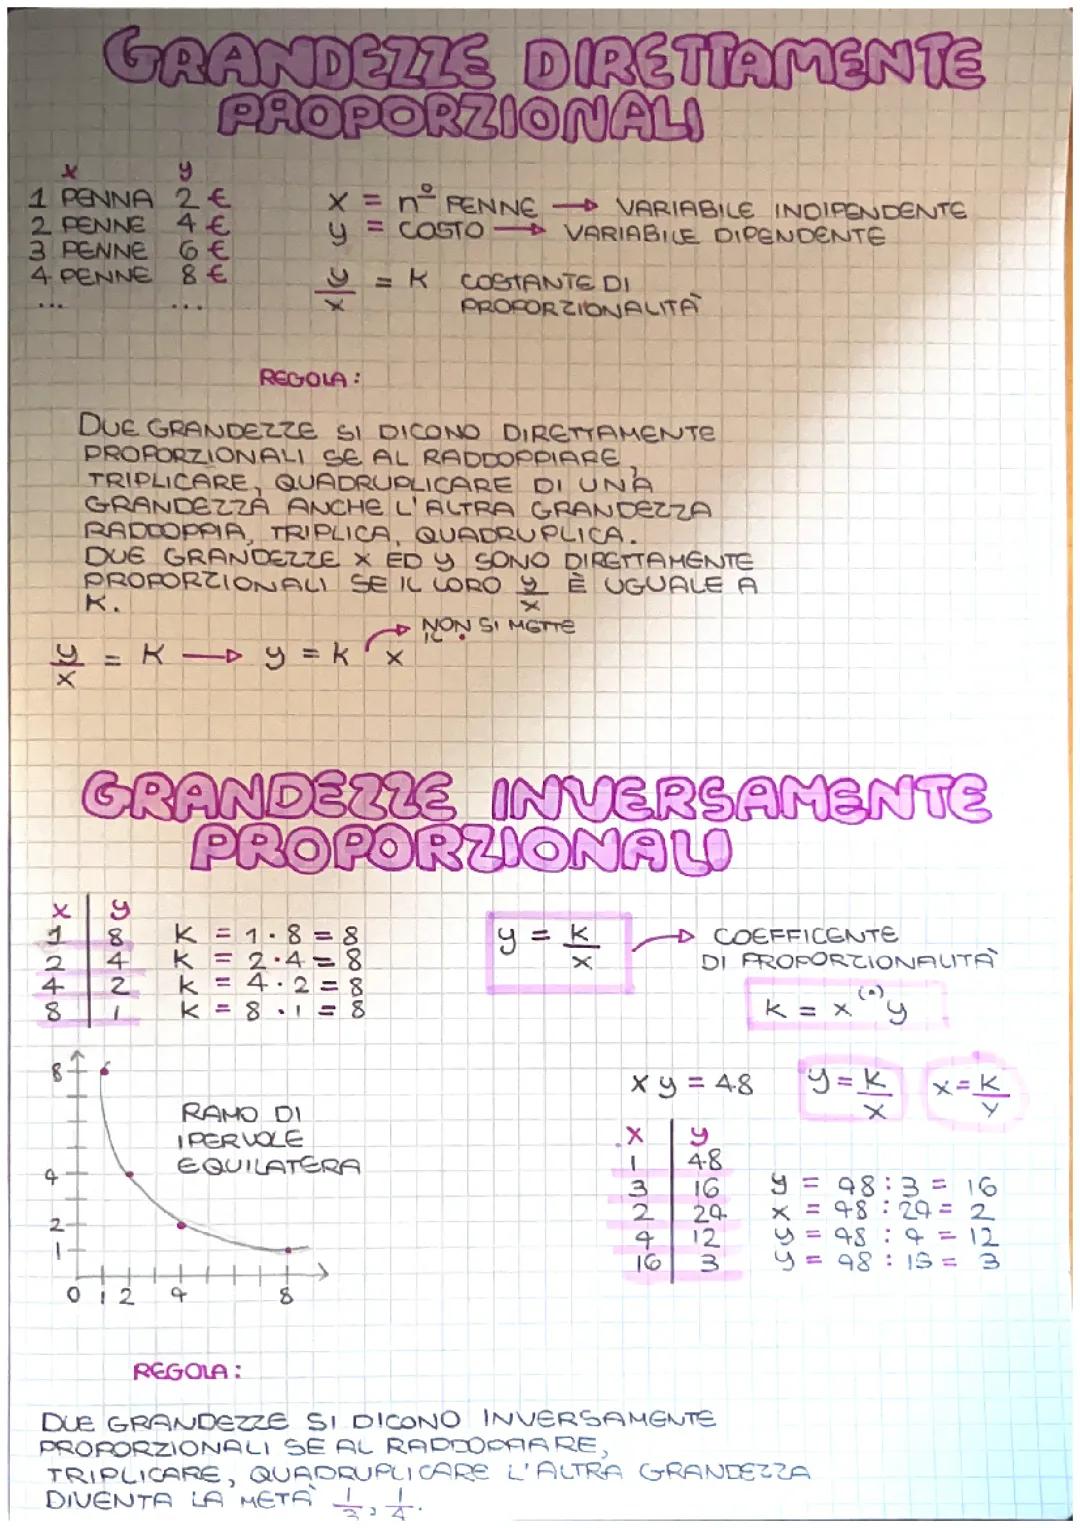 GRANDEZZE DIRETTAMENTE
PROPORZIONALI
x y
1 PENNA 2 €
2 PENNE 4 €
3 PENNE 6 €
4 PENNE 8 €
... ...
x = nº PENNE → VARIABILE INDIPENDENTE
y = COSTO → VARIABILE DIPENDENTE
y/x = K COSTANTE DI
PROPORZIONALITÀ
REGOLA:
DUE GRANDEZZE SI DICONO DIRETTAMENTE
PROPORZIONALI SE AL RADDOPPIARE,
TRIPLICARE, QUADRUPLICARE DI UNA
GRANDEZZA ANCHE L'ALTRA GRANDEZZA
RADDOPPIA, TRIPLICA, QUADRUPLICA.
DUE GRANDEZZE X ED y SONO DIRETTAMENTE
PROPORZIONALI SE IL LORO y/x È UGUALE A
K.
NON SI METTE
IL •
y/x = K → y = k x
GRANDEZZE INVERSAMENTE
PROPORZIONALI
x y
1 8 K = 1 · 8 = 8
2 4 K = 2 · 4 = 8
4 2 K = 4 · 2 = 8
8 1 K = 8 · 1 = 8
y = K/x → COEFFICENTE
DI PROPORZIONALITÀ
K = x (·) y
8
4
2
1
0 1 2 4 8
RAMO DI
IPERVOLE
EQUILATERA
x y = 48 y = K/x x = K/y
x y
1 48
3 16
2 24
4 12
16 3
y = 48 : 3 = 16
x = 48 : 24 = 2
y = 48 : 4 = 12
y = 48 : = 3
REGOLA:
DUE GRANDEZZE SI DICONO INVERSAMENTE
PROPORZIONALI SE AL RADDOPPIARE,
TRIPLICARE, QUADRUPLICARE L'ALTRA GRANDEZZA
DIVENTA LA METÀ 1/3, 1/4.